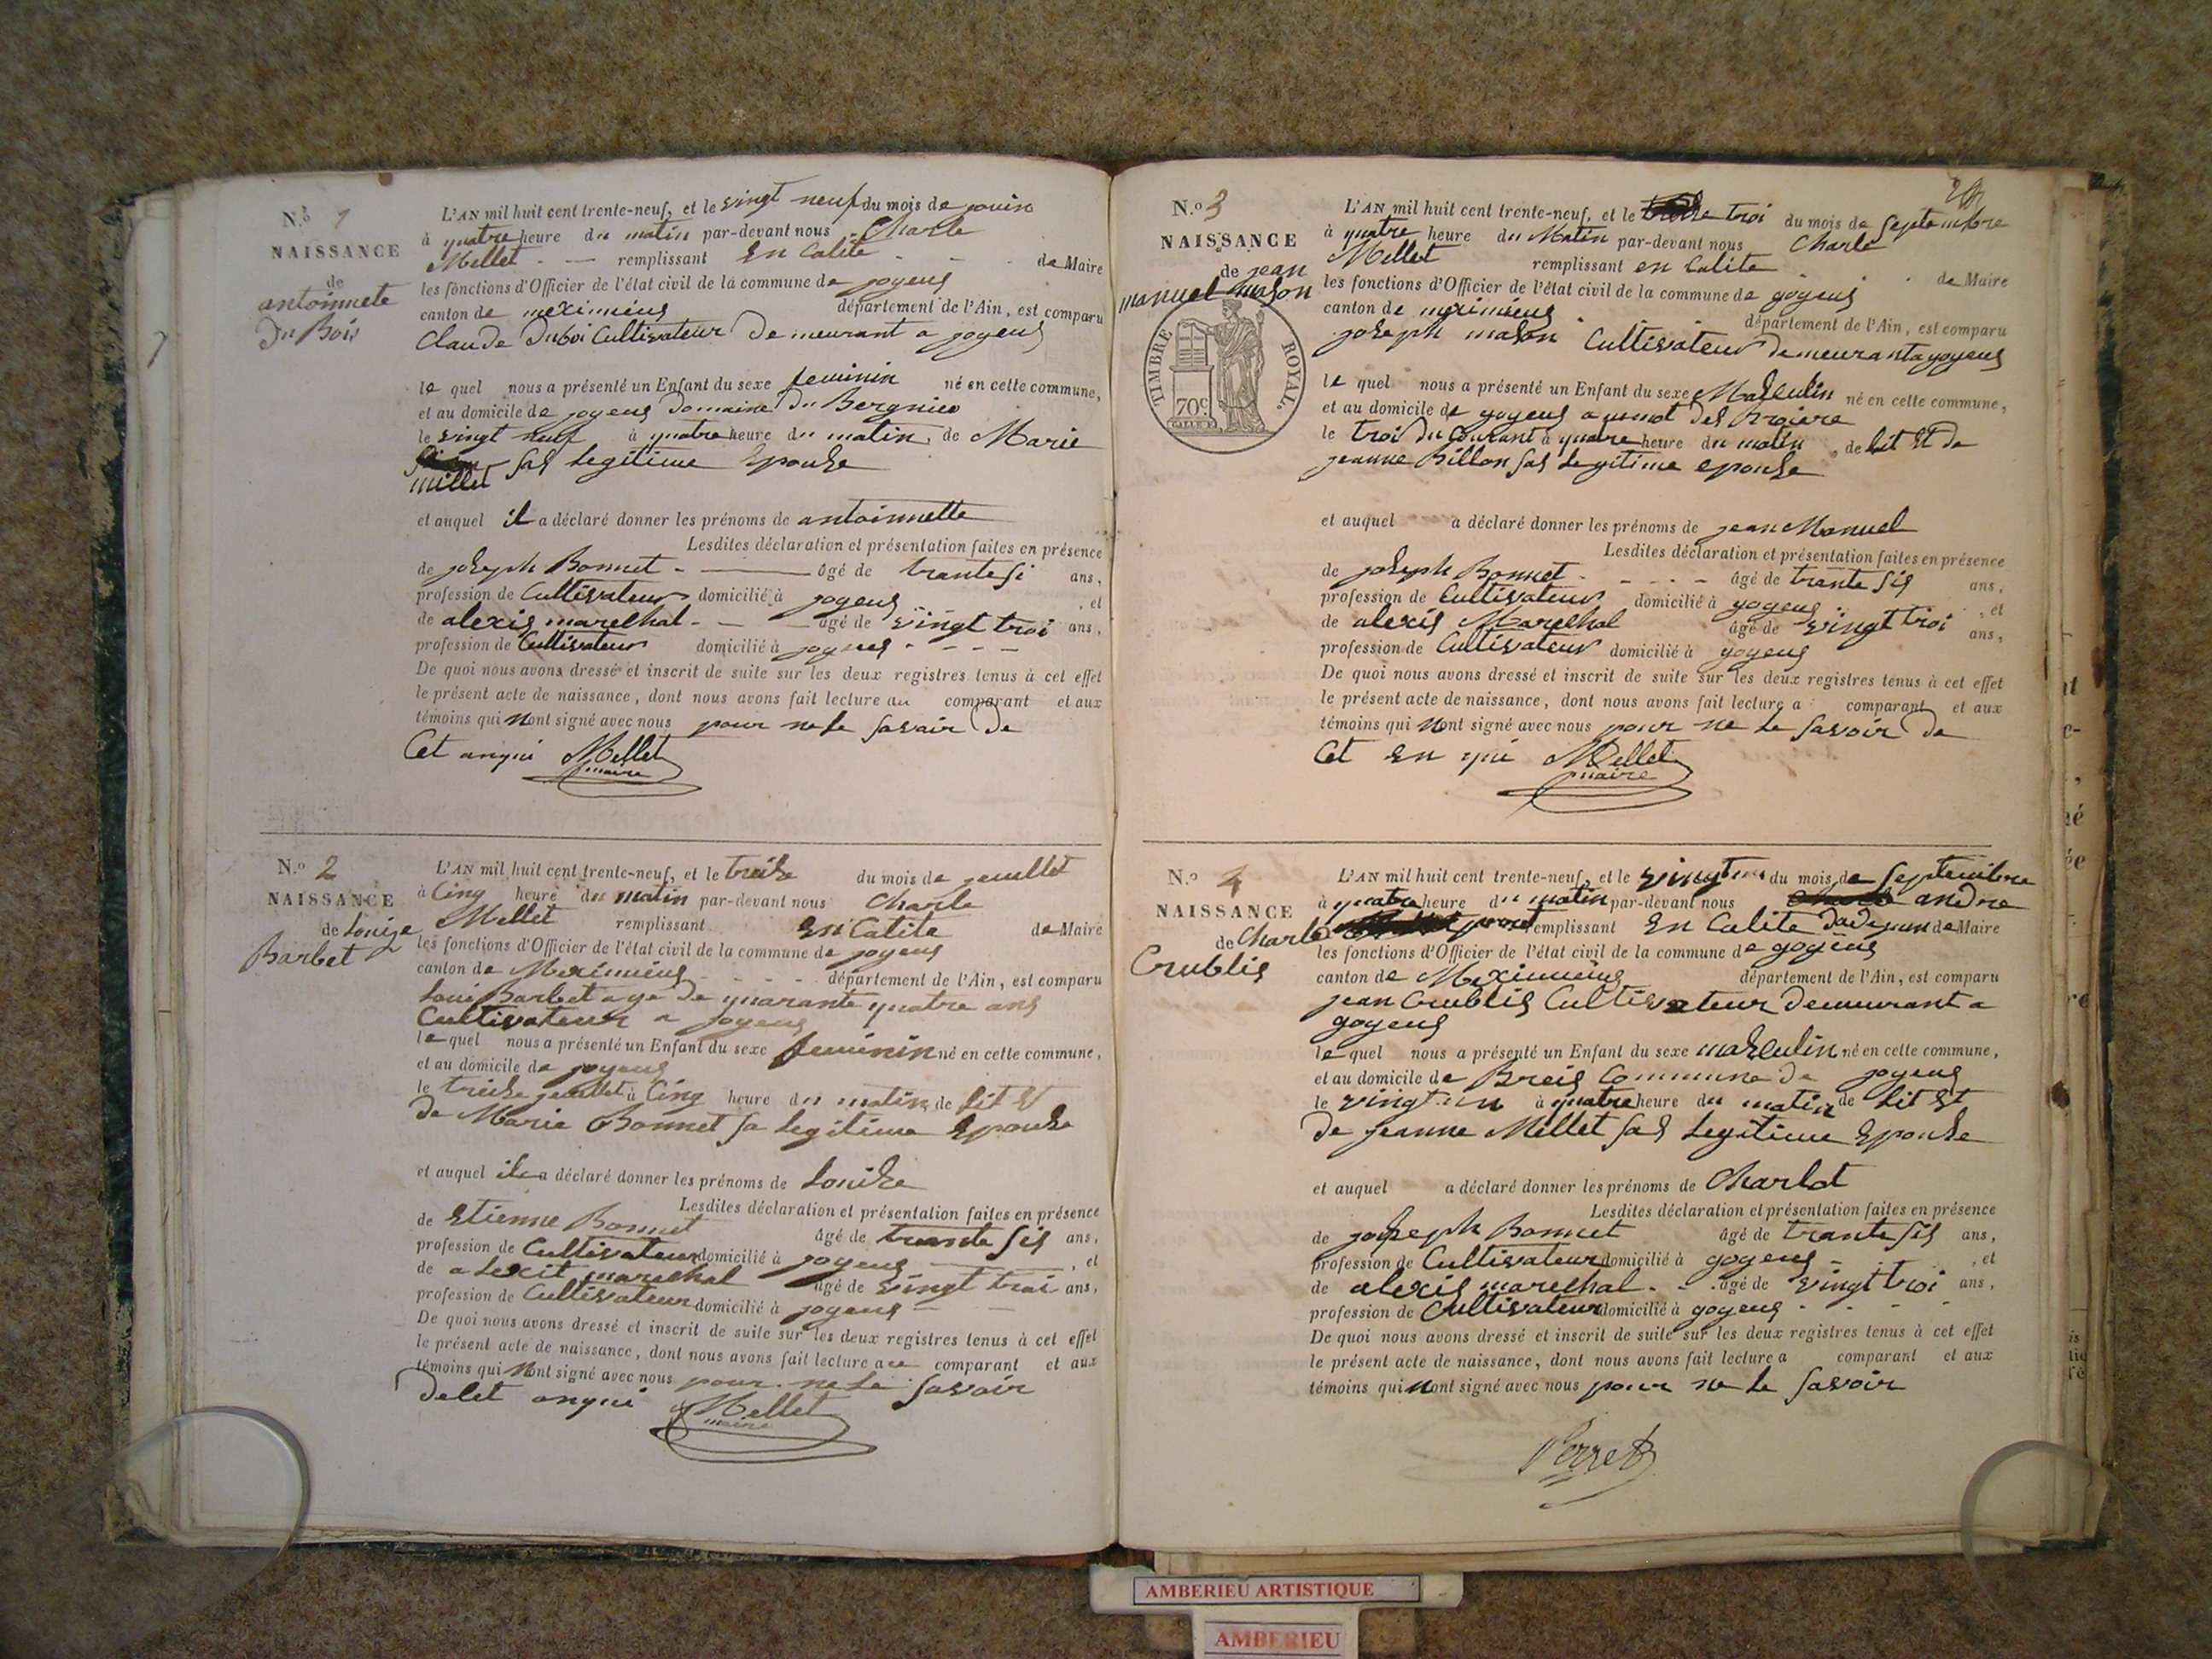 N.o 1
NAISSANCE
de
antoinnete
Du Bois
L'AN mil huit cent trente-neuf, et le vingt neuf du mois de jouin
à quatre heure du matin par-devant nous Charle
Mellet remplissant En Calité de Maire
les fonctions d'Officier de l'état civil de la commune de joyeus
canton de meximieus département de l'Ain, est comparu
Claude Duboi Cultivateur Demeurant a joyeus
le quel nous a présenté un Enfant du sexe feminin né en cette commune,
et au domicile de joyeus Domaine Du Bergnieo
le vingt neuf à quatre heure du matin, de Marie
millet sas Legitime Epouse
et auquel il a déclaré donner les prénoms de antoinnette
Lesdites déclaration et présentation faites en présence
de joseph Bonnet âgé de trante si ans,
profession de Cultivateur domicilié à joyeus , et
de alexis marechal âgé de vingt troi ans,
profession de Cultivateur domicilié à joyeus
De quoi nous avons dressé et inscrit de suite sur les deux registres tenus à cet effet
le présent acte de naissance, dont nous avons fait lecture au comparant et aux
témoins qui nont signé avec nous pour ne le savoir De
Cet anqui Mellet
maire
N.o 2
NAISSANCE
de Louize
Barbet
L'AN mil huit cent trente-neuf, et le treise du mois de jeuillet
à Cinq heure du matin par-devant nous Charle
Mellet remplissant En Calite de Maire
les fonctions d'Officier de l'état civil de la commune de joyeus
canton de Meximieus département de l'Ain, est comparu
Loui Barbet age De quarante quatre ans
Cultivateur a joyeus
le quel nous a présenté un Enfant du sexe feminin né en cette commune,
et au domicile de joyeus
le treise jeuillet à Cinq heure du matin de Lit Et
De Marie Bonnet sa Legitime Epouse
et auquel il a déclaré donner les prénoms de Louise
Lesdites déclaration et présentation faites en présence
de Etienne Bonnet âgé de trante sis ans,
profession de Cultivateur domicilié à joyeus , et
de alexit marechal âgé de vingt troi ans,
profession de Cultivateur domicilié à joyeus
De quoi nous avons dressé et inscrit de suite sur les deux registres tenus à cet effet
le présent acte de naissance, dont nous avons fait lecture au comparant et aux
témoins qui nont signé avec nous pour ne le savoir
De Cet anqui Mellet
maire
N.o 3
NAISSANCE
de jean
manuel mason
TIMBRE ROYAL.
70c
L'AN mil huit cent trente-neuf, et le troi du mois de Septembre
à quatre heure du Matin par-devant nous Charle
Mellet remplissant en Calite de Maire
les fonctions d'Officier de l'état civil de la commune de goyeus
canton de meximieus département de l'Ain, est comparu
joseph mason Cultivateur Demeurant a yoyeus
le quel nous a présenté un Enfant du sexe Masculin né en cette commune,
et au domicile de yoyeus
le troi Du Courant à quatre heure du matin de Lit Et De
jeanne Billon sas Legitime epouse
et auquel a déclaré donner les prénoms de jean Manuel
Lesdites déclaration et présentation faites en présence
de joseph Bonnet âgé de trante sis ans,
profession de Cultivateur domicilié à yoyeus , et
de alexis Marechal âgé de vingt troi ans,
profession de Cultivateur domicilié à yoyeus
De quoi nous avons dressé et inscrit de suite sur les deux registres tenus à cet effet
le présent acte de naissance, dont nous avons fait lecture a comparant et aux
témoins qui nont signé avec nous pour ne le savoir De
Cet en qui Mellet
maire
N.o 4
NAISSANCE
de Charle
Crublis
L'AN mil huit cent trente-neuf, et le vingt un du mois de Septembre
à quatre heure du matin par-devant nous andre
remplissant En Calite Dadejoun de Maire
les fonctions d'Officier de l'état civil de la commune de goyeus
canton de Meximieus département de l'Ain, est comparu
jean Crublis Cultivateur Demeurant a
goyeus
le quel nous a présenté un Enfant du sexe masculin né en cette commune,
et au domicile de Breis Commune De joyeus
le vingt un à quatre heure du matin de Lit Et
De jeanne Mellet sas Legitime Epouse
et auquel a déclaré donner les prénoms de Charlot
Lesdites déclaration et présentation faites en présence
de joseph Bonnet âgé de trante sis ans,
profession de Cultivateur domicilié à goyeus , et
de alexis marechal âgé de vingt troi ans,
profession de Cultivateur domicilié à goyeus
De quoi nous avons dressé et inscrit de suite sur les deux registres tenus à cet effet
le présent acte de naissance, dont nous avons fait lecture a comparant et aux
témoins qui nont signé avec nous pour ne le savoir
Perret
AMBERIEU ARTISTIQUE
AMBERIEU